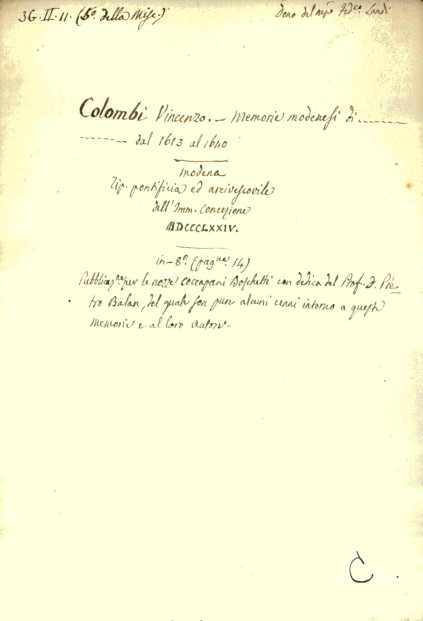 36. II. 11. (5º della Misc.)
Dono del mse Fedco Landi
Colombi Vincenzo. — Memorie modenesi di ........
-------- dal 1613 al 1640
Modena
Tip. pontificia ed arcivescovile
dell'Imm. Concezione
MDCCCLXXIV.
in-8º. (pagne 14)
Pubblicne per le nozze Coccapani Boschetti con dedica del Prof. D. Pie-
tro Balan, del quale son pure alcuni cenni intorno a queste
memorie e al loro autore.-
C